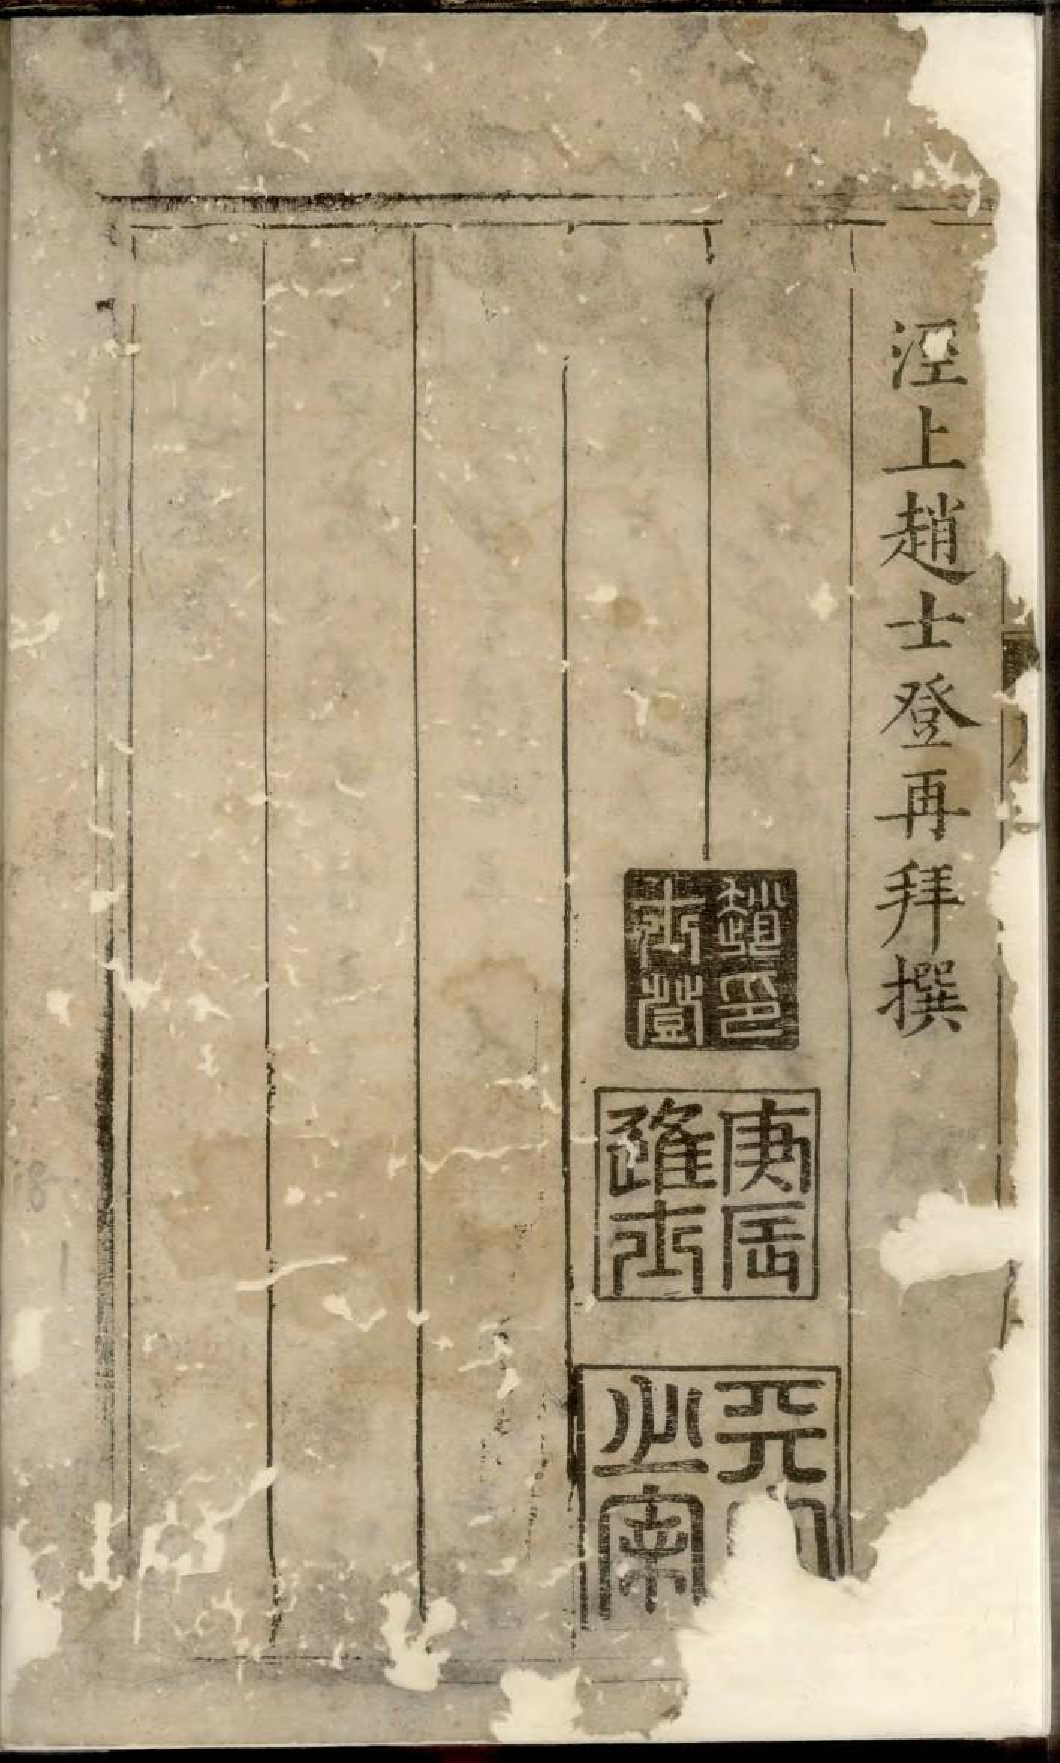 涇上趙士登再拜撰
趙印
士登
庚辰
進士